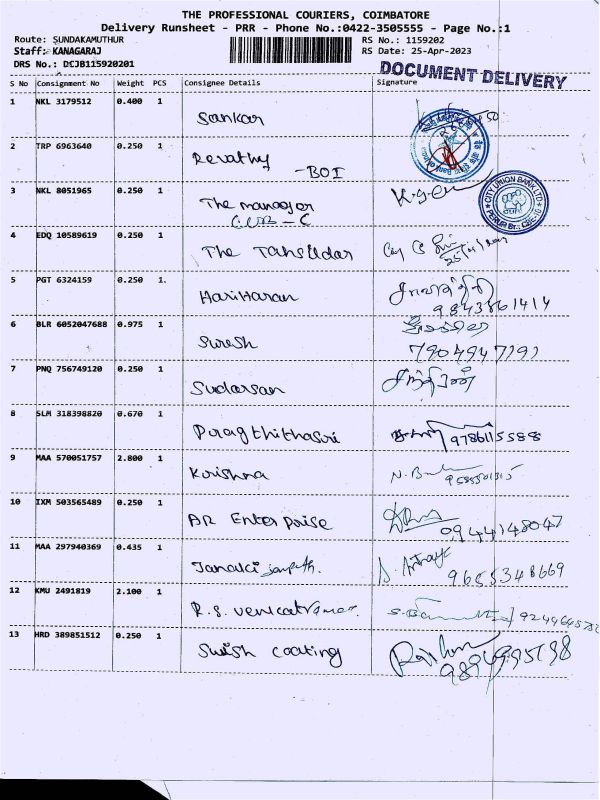 THE PROFESSIONAL COURIERS, COIMBATORE
Delivery Runsheet - PRR - Phone No.:0422-3505555 - Page No.:1
Route: SUNDAKAMUTHUR RS No.: 1159202
Staff: KANAGARAJ RS Date: 25-Apr-2023
DRS No.: DCJB115920201
DOCUMENT DELIVERY
S No Consignment No Weight PCS Consignee Details Signature
1 NKL 3179512 0.400 1
Sankar
2 TRP 6963640 0.250 1
Revathy
-BOI
3 NKL 8051965 0.250 1
The manager
CUB-C
CITY UNION BANK LTD
4 EDQ 10589619 0.250 1
The Tahsildar
5 PGT 6324159 0.250 1.
Hariharan
9843861414
6 BLR 6052047688 0.975 1
Suresh
7904947191
7 PNQ 756749120 0.250 1
Sudarsan
8 SLM 318398820 0.670 1
9786115588
9 MAA 570051757 2.800 1
Krishna
10 IXM 503565489 0.250 1
AR Enterprise
0944148047
11 MAA 297940369 0.435 1
Janaki
9655348669
12 KMU 2491819 2.100 1
R.S. Venkatraman
13 HRD 389851512 0.250 1
Swish coating